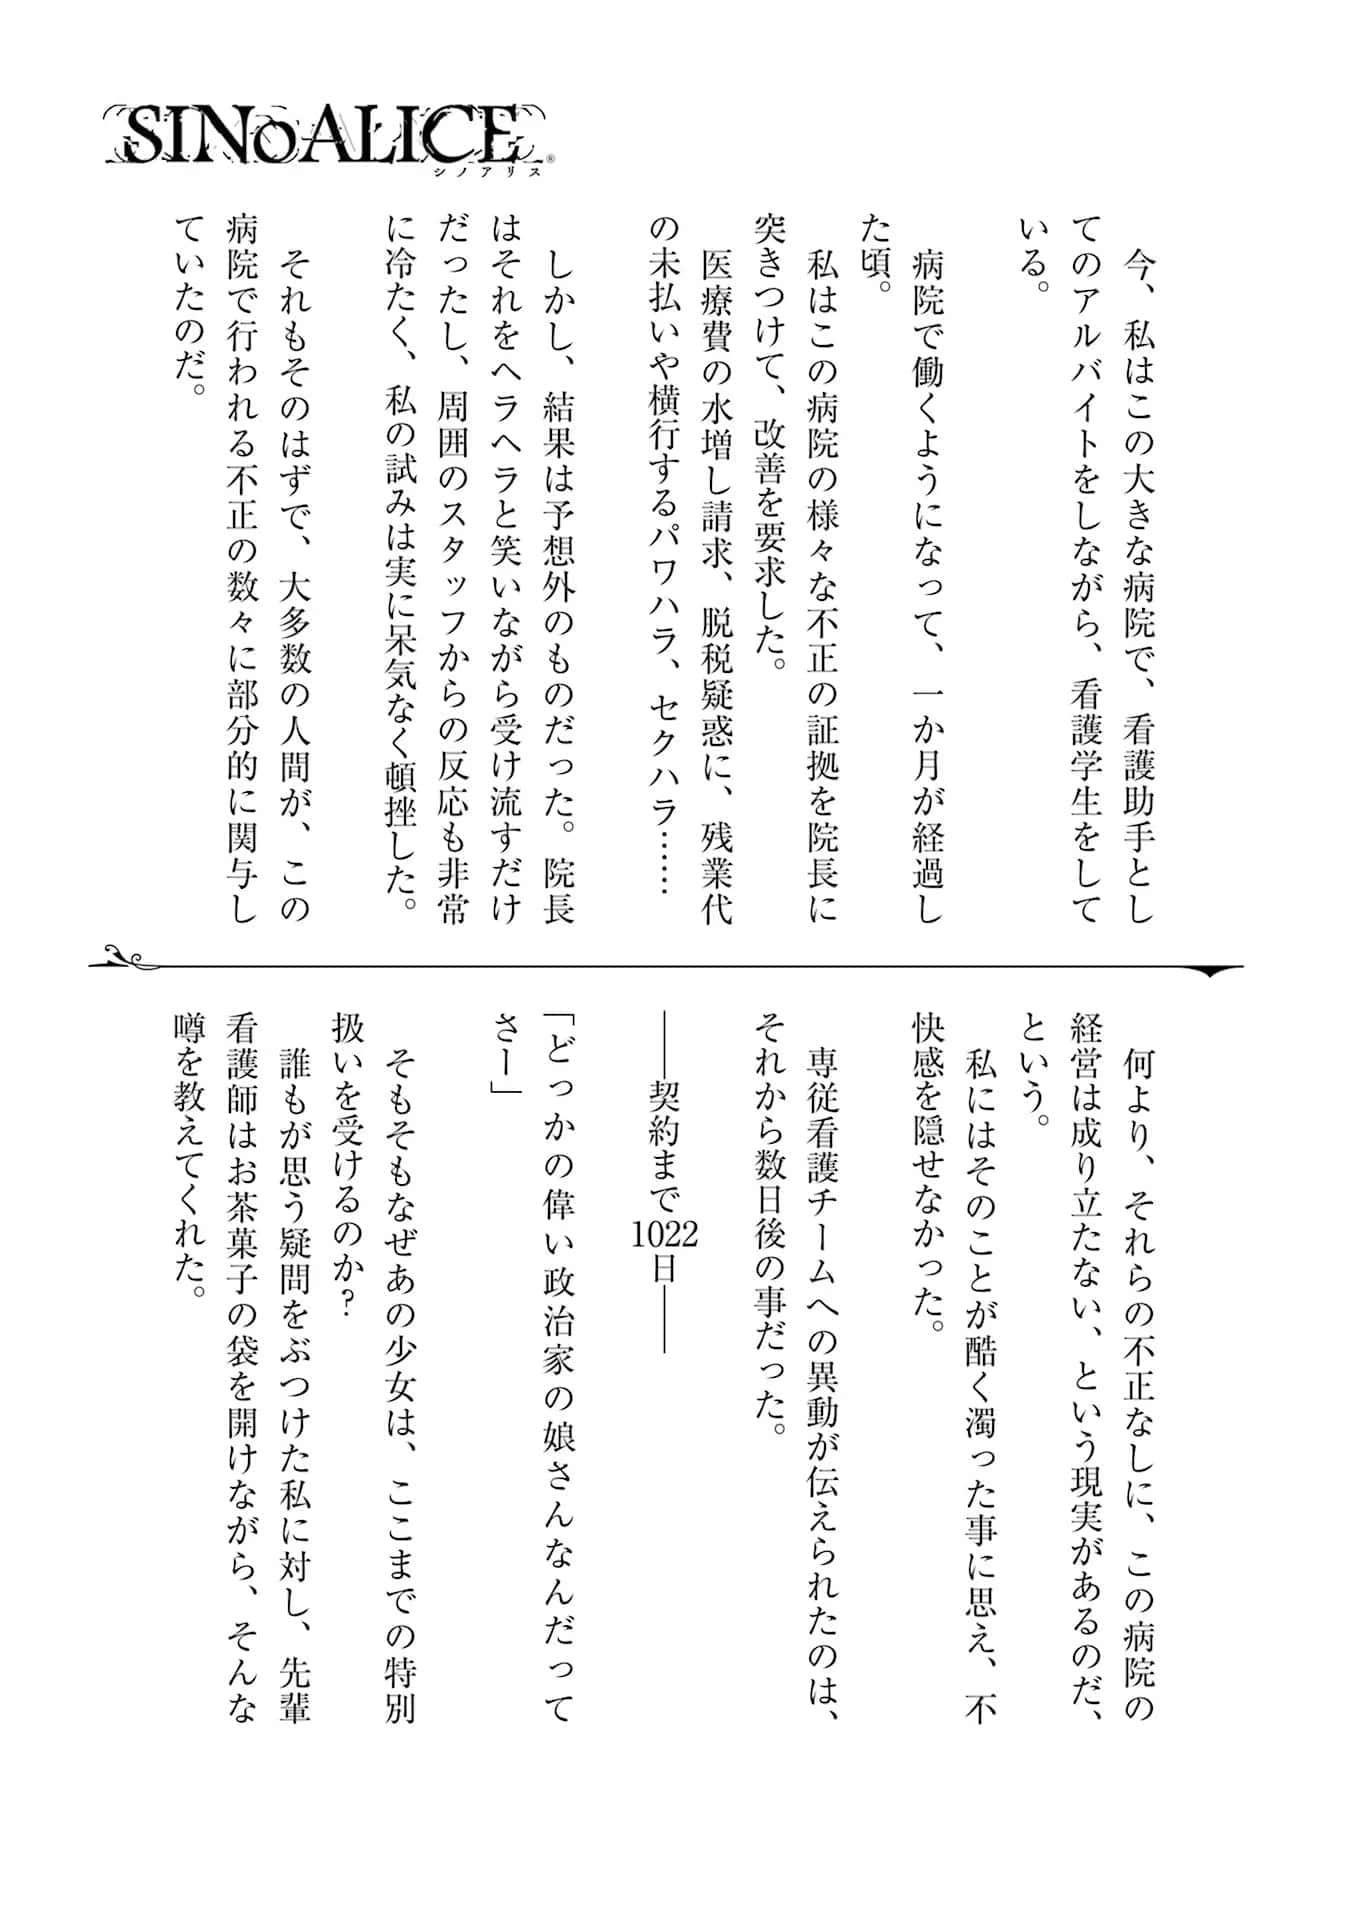 SINoALICE
シノアリス
　今、私はこの大きな病院で、看護助手とし
てのアルバイトをしながら、看護学生をして
いる。
　病院で働くようになって、一か月が経過し
た頃。
　私はこの病院の様々な不正の証拠を院長に
突きつけて、改善を要求した。
　医療費の水増し請求、脱税疑惑に、残業代
の未払いや横行するパワハラ、セクハラ……
　しかし、結果は予想外のものだった。院長
はそれをヘラヘラと笑いながら受け流すだけ
だったし、周囲のスタッフからの反応も非常
に冷たく、私の試みは実に呆気なく頓挫した。
　それもそのはずで、大多数の人間が、この
病院で行われる不正の数々に部分的に関与し
ていたのだ。
　何より、それらの不正なしに、この病院の
経営は成り立たない、という現実があるのだ、
という。
　私にはそのことが酷く濁った事に思え、不
快感を隠せなかった。
　専従看護チームへの異動が伝えられたのは、
それから数日後の事だった。
――契約まで1022日――
「どっかの偉い政治家の娘さんなんだって
さー」
　そもそもなぜあの少女は、ここまでの特別
扱いを受けるのか？
　誰もが思う疑問をぶつけた私に対し、先輩
看護師はお茶菓子の袋を開けながら、そんな
噂を教えてくれた。